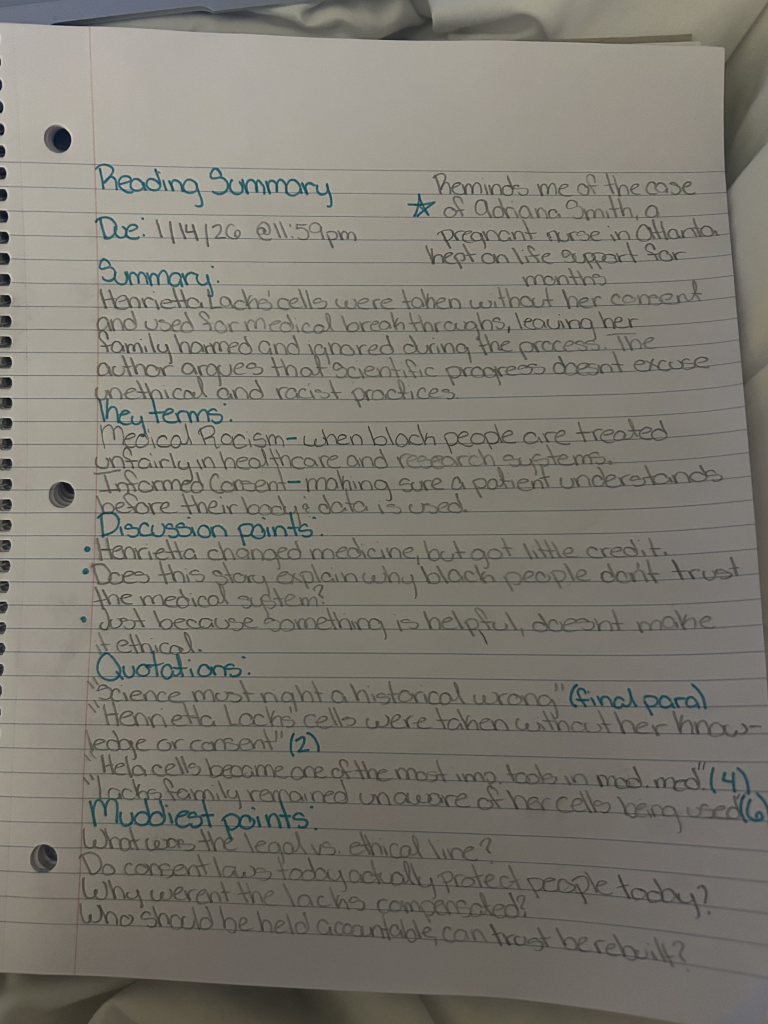 Reading Summary
Due: 1/14/26 @11:59pm
Reminds me of the case
☆ of Adriana Smith, a
pregnant nurse in Atlanta
kept on life support for
months
Summary:
Henrietta Lacks' cells were taken without her consent
and used for medical breakthroughs, leaving her
family harmed and ignored during the process. The
author argues that scientific progress doesnt excuse
unethical and racist practices
Key terms:
Medical Racism- when black people are treated
unfairly in healthcare and research systems.
Informed Consent- making sure a patient understands
before their body & data is used.
Discussion points:
• Henrietta changed medicine, but got little credit.
• Does this story explain why black people don't trust
the medical system?
• Just because something is helpful, doesnt make
it ethical.
Quotations:
"Science must right a historical wrong" (final para)
"Henrietta Lacks' cells were taken without her know-
ledge or consent" (2)
"Hela cells became one of the most imp. tools in mod. med" (4)
"Lacks family remained unaware of her cells being used" (6)
Muddiest points:
What was the legal vs. ethical line?
Do consent laws today actually protect people today?
Why werent the lacks compensated?
Who should be held accountable, can trust be rebuilt?